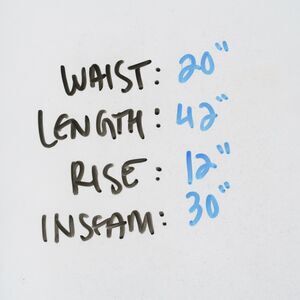 WAIST: 20"
LENGTH: 42"
RISE: 12"
INSEAM: 30"